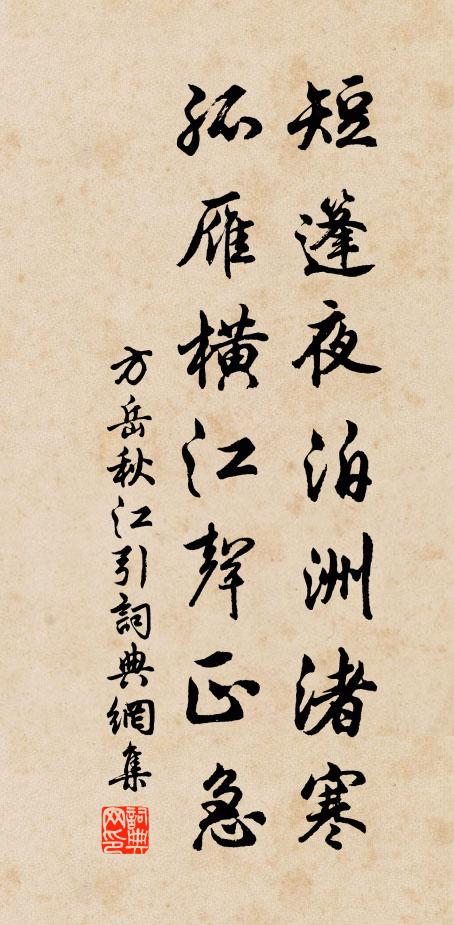 短篷夜泊洲渚寒
孤雁橫江聲正急
方岳秋江引詞典網集
詞典网印